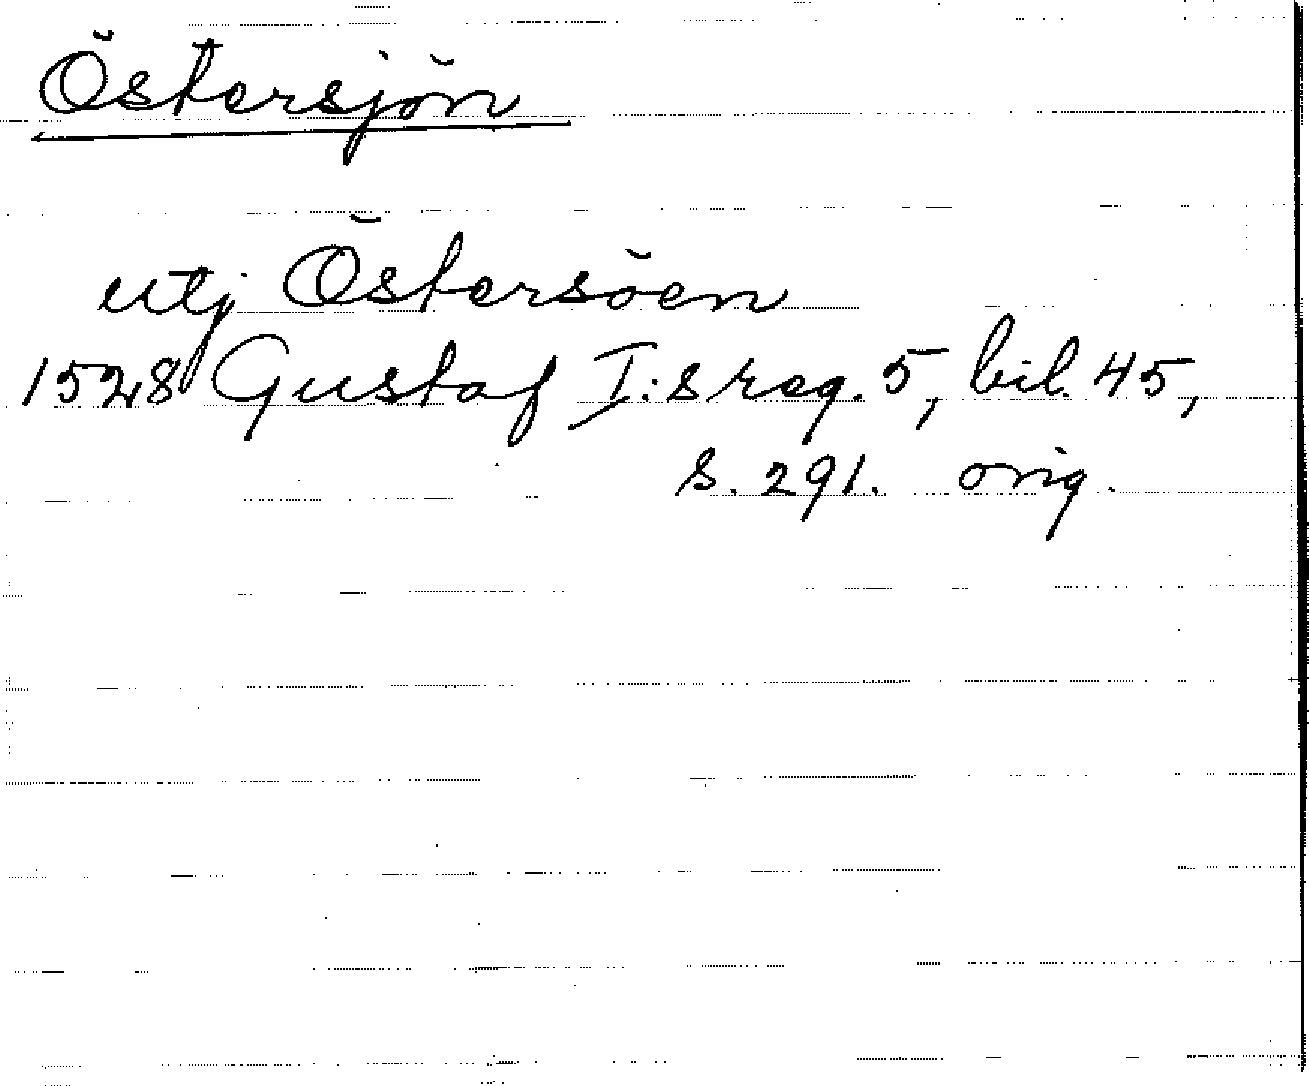 Östersjön
utj Östersöen
1528 Gustaf I:s reg. 5, bil. 45,
s. 291. orig.